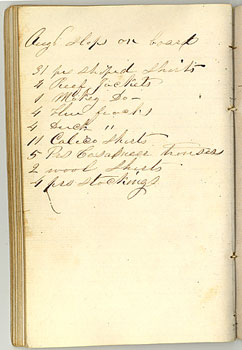 Aug Slops on board
31 prs striped Shirts
4 Reef Jackets
1 Mokey Do—
4 Thin frocks
4 Duck "
11 Calico Shirts
5 Prs Cassimeer trousers
2 wool Shirts
4 prs stockings